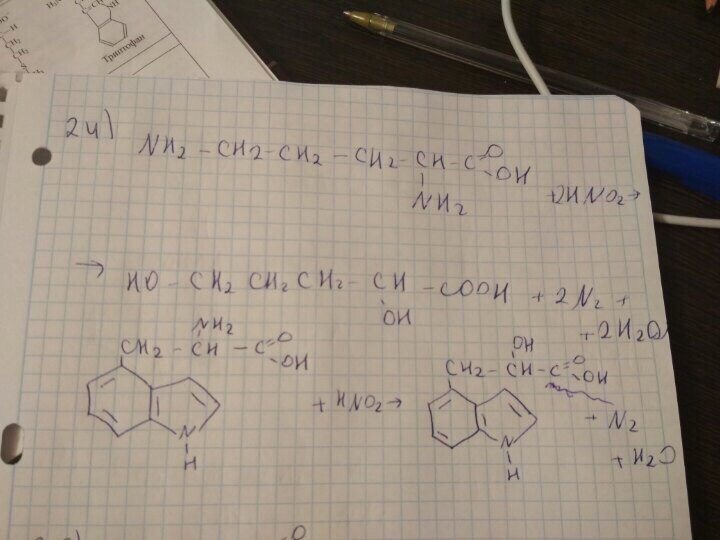 Триптофан
24)
NH2 - CH2 - CH2 - CH2 - CH - C =O - OH
NH2
+2HNO2 →
→ HO - CH2 CH2 CH2 - CH - COOH + 2N2 +
OH
+ 2H2O
NH2
CH2 - CH - C =O - OH
+ HNO2 →
N
H
OH
CH2 - CH - C =O - OH
+ N2
N
+ H2O
H